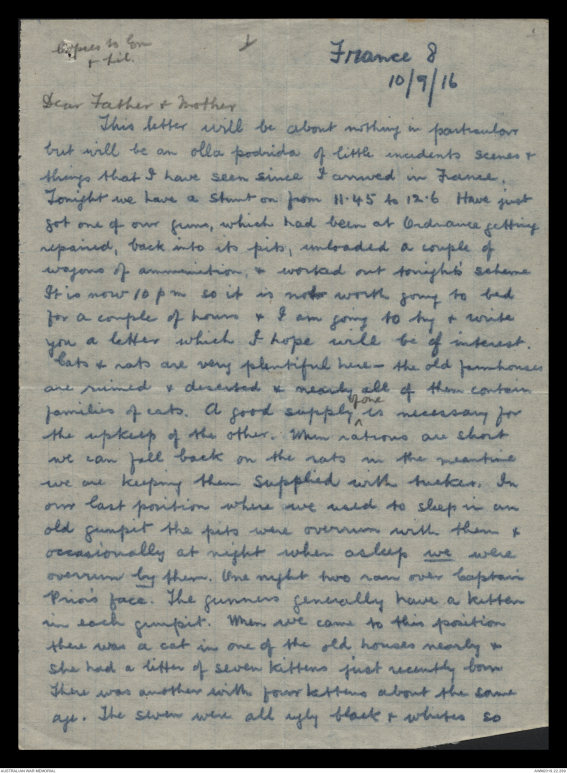 Copies to Em
+ Lil.
France 8
10/9/16
Dear Father + Mother
This letter will be about nothing in particular
but will be an olla podrida of little incidents scenes +
things that I have seen since I arrived in France.
Tonight we have a stunt on from 11.45 to 12.6 Have just
got one of our guns, which had been at Ordnance getting
repaired, back into its pits, unloaded a couple of
wagons of ammunition, + worked out tonight's scheme
It is now 10 p m so it is not worth going to bed
for a couple of hours + I am going to try + write
you a letter which I hope will be of interest.
Cats + rats are very plentiful here - the old farmhouses
are ruined + deserted + nearly all of them contain
families of cats. A good supply of one is necessary for
the upkeep of the other. When rations are short
we can fall back on the rats in the meantime
we are keeping them supplied with tucker. In
our last position where we used to sleep in an
old gunpit the pits were overrun with them +
occasionally at night when asleep we were
overrun by them. One night two ran over Captain
Prior's face. The gunners generally have a kitten
in each gunpit. When we came to this position
there was a cat in one of the old houses nearby +
she had a litter of seven kittens just recently born
There was another with four kittens about the same
age. The seven were all ugly black + whites so
AUSTRALIAN WAR MEMORIAL